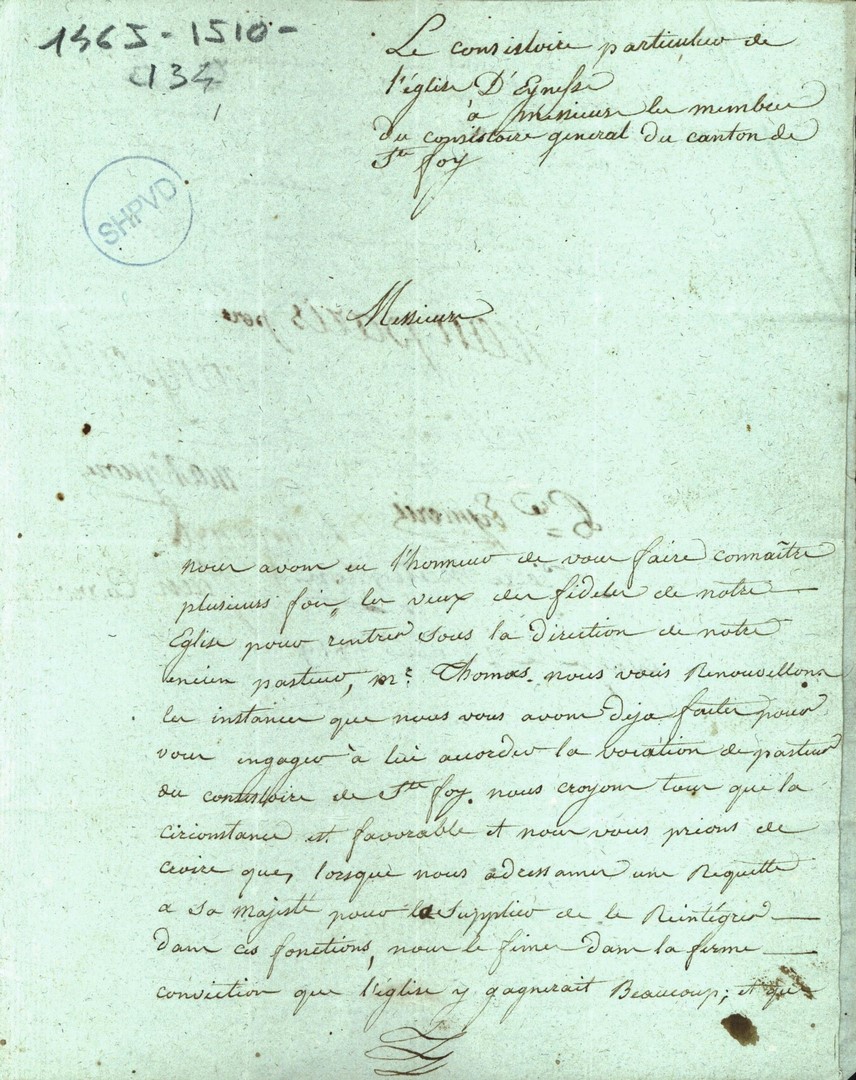 1465-1510-
134
Le consistoire particulier de
l'église D'Eynesse
à messieurs les membres
du consistoire general du canton de
Ste foy
SHPVD
Messieurs
nous avons eu l'honneur de vous faire connaître
plusieurs fois, les veux des fideles de notre
Eglise pour rentrer sous la direction de notre
encien pasteur, mr. Thomas. nous vous Renouvellons
les instances que nous vous avons deja faites pour
vous engager à lui accorder la vocation de pasteur
du consistoire de Ste foy. nous croyons tous que la
circonstance est favorable et nous vous prions de
croire que, lorsque nous adressames une Requette
a Sa Majesté pour la supplier de le Reintégrer
dans ces fonctions, nous le fimes dans la ferme
conviction que l'église y gagnerait Beaucoup; et que